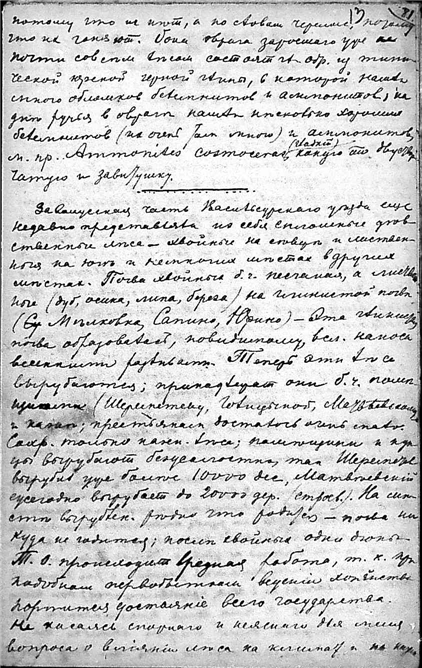 потому что не пьют, а по словам черемис потому
что не гоняют. Бока оврага заросшего уже
почти совсем лесом состоят гл. обр. из типи-
ческой юрской черной глины, в которой нашел
много обломков белемнитов и аммонитов; на
дне ручья в овраге нашел несколько хороших
белемнитов (их очень там много) и аммонитов,
м. пр. Ammonites какую то двуствор-
чатую и завитушку.
Заволжская часть Васильсурского уезда еще
недавно представляла из себя сплошные дев-
ственные леса – хвойные на севере и листвен-
ные на юге и немногих местах в других
местах. Почва хвойных б. ч. песчаная, а листвен-
ных (дуб, осина, липа, береза) на глинистой почве
(Сапино, Юрино) – Эта глинистая
почва образовалась, повидимому, вся наноса
весенними разливами. Теперь эти леса
вырубаются; принадлежат они б. ч. поме-
щикам (Шереметеву,
и казне; крестьянам досталось очень мало.
Сохр. только казен. леса; помещики и куп-
цы вырубают безжалостно, так Шереметев
вырубил уже более 10000 дес.,
ежегодно вырубает до 20000 дер. (строев.). На ме-
сте вырубок редко что родится – почва ни
куда не годится; после хвойных одни дюны.
Т. о. происходит вредная работа, т. к. при
подобном первобытном ведении хозяйства
портится достояние всего государства.
Не касаясь спорного и неясного для меня
вопроса о влиянии леса на климат и на